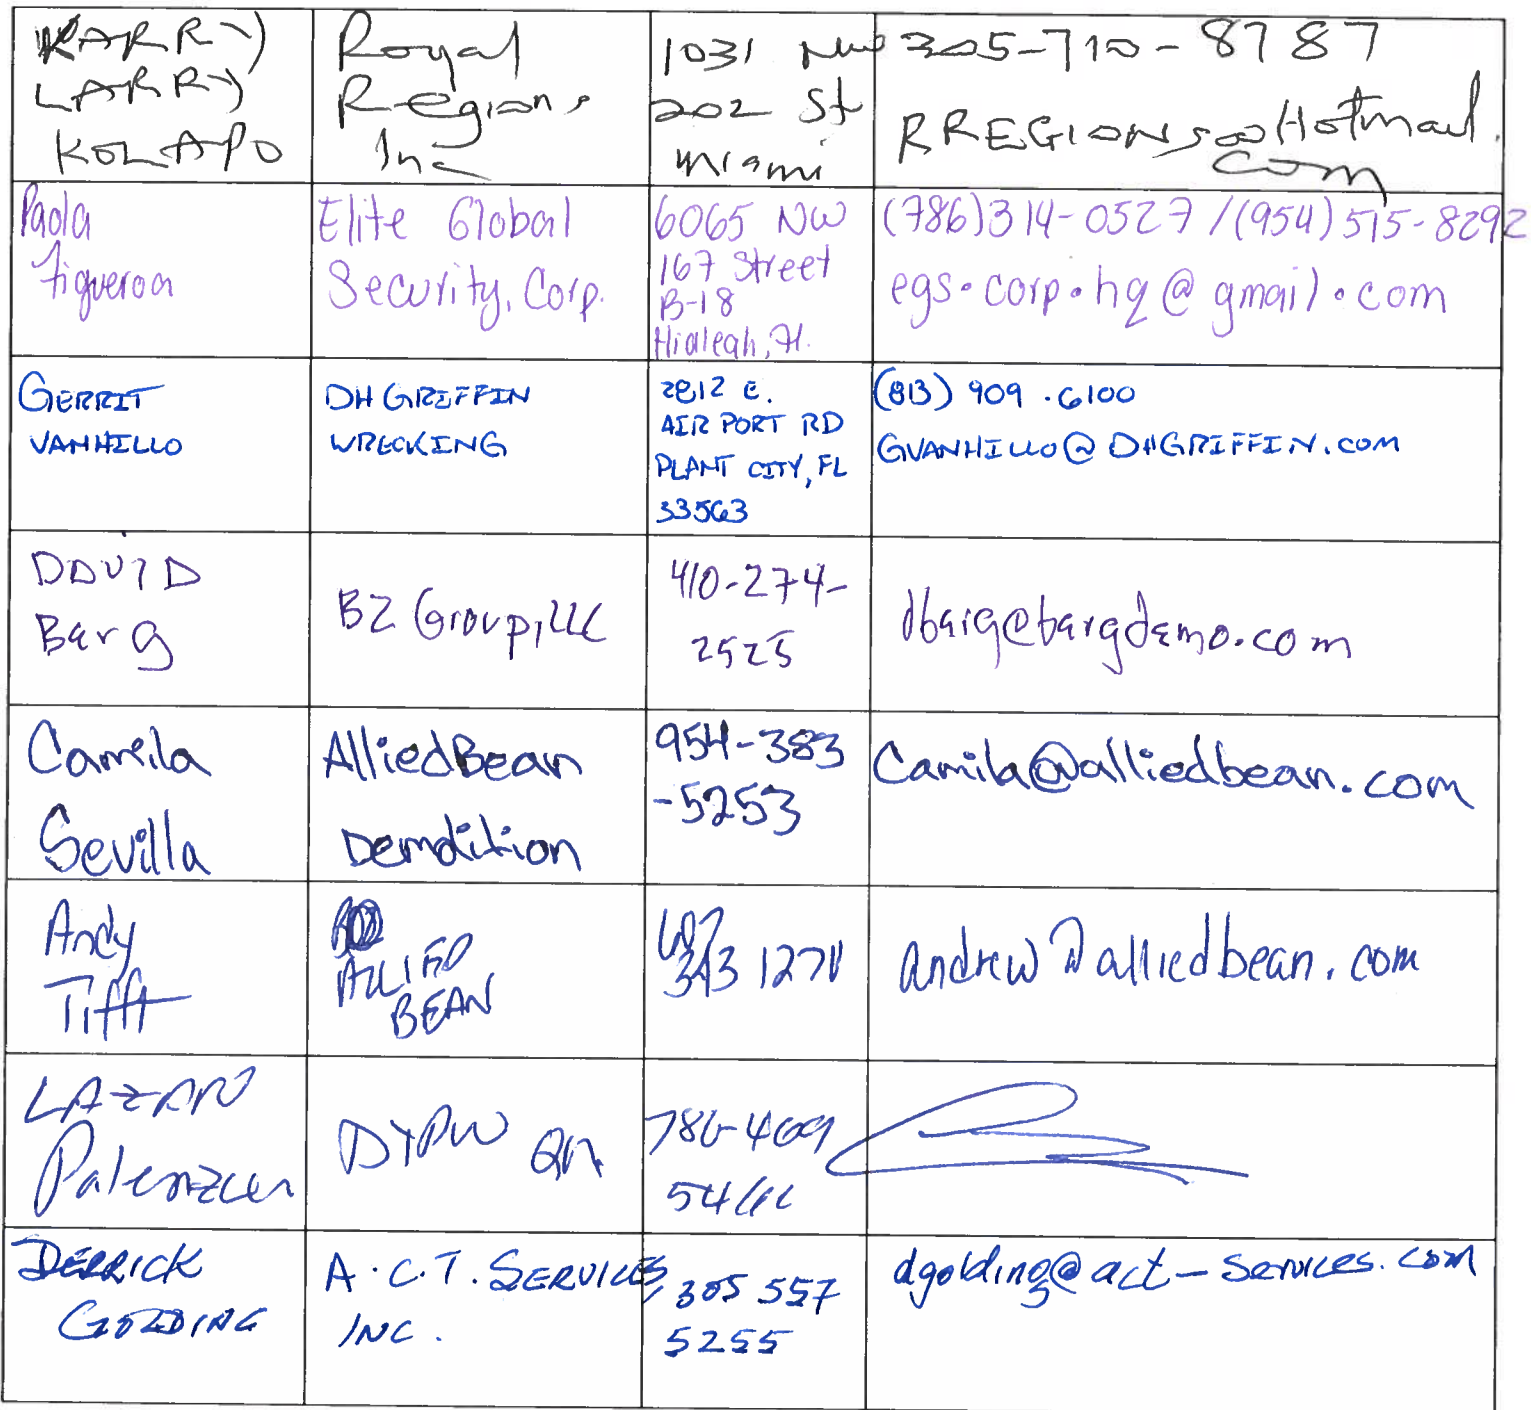 KARRY
LARRY
KOLAPO
Royal
Regions
Inc
1031 NW
202 St
Miami
305-710-8787
RREGIONS@Hotmail.
com
Paola
Figueroa
Elite Global
Security, Corp.
6065 NW
167 Street
B-18
Hialeah, Fl.
(786)314-0527 / (954)515-8292
egs.corp.hq@gmail.com
GERRIT
VANHILLO
DH GRIFFIN
WRECKING
2812 E.
AIR PORT RD
PLANT CITY, FL
33563
(813) 909.6100
GVANHILLO@DHGRIFFIN.COM
DAVID
Barg
BZ Group, LLC
410-274-
2525
dbarg@bargdemo.com
Camila
Sevilla
AlliedBean
Demolition
954-383
-5253
Camila@alliedbean.com
Andy
Tifft
ALLIED
BEAN
607
343 1271
andrew@alliedbean.com
LAZARO
Palenzuela
786-469
DERRICK
GOLDING
A.C.T. SERVICES,
INC.
305 557
5255
dgolding@act-services.com